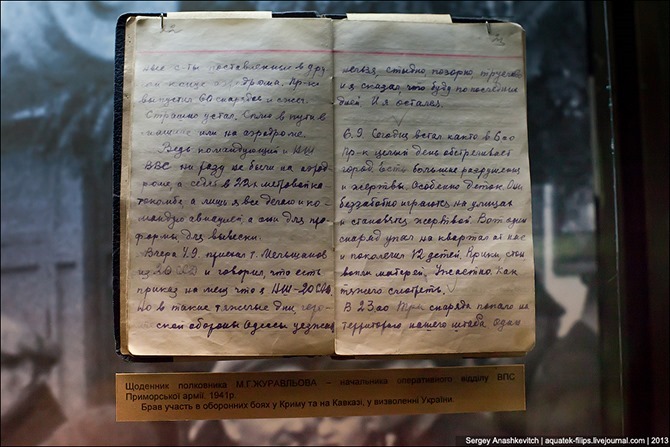 ные с-ты поставленные в др
конце аэродрома. Пр-к
выпустил 60 снарядов и сжег.
Страшно устал. Сплю в пути в
машине или на аэродроме.
Ведь командующий и НШ
ВВС ни разу не были на аэрод
роме, а сидят в 22х метровой ка
такомбе, а лишь я все делаю и ко-
мандую авиацией а они для про-
формы для вывески.
Вчера 4.9. приехал т.
и говорил, что есть
приказ на меня, что я НШ-20
но в такие тяжелые дни геро-
ской обороны Одессы уезжать
нельзя, стыдно, позорно,
и я сказал, что буду до последних
дней. И я остался.
6.9. Сегодня встал как то в 6-00
Пр-к целый день обстреливает
город. Есть большие разрушения
и жертвы. Особенно деток. Они
беззаботно играют на улицах
и становятся жертвой. Вот один
снаряд упал на квартал от нас
и покалечил 12 детей. Крики, стоны
вопли матерей. Ужасно. Как
тяжело смотреть.
В 23.00 три снаряда попало на
территорию нашего штаба один
Щоденник полковника М.Г.ЖУРАВЛЬОВА – начальника оперативного відділу ВПС
Приморської армії. 1941р.
Брав участь в оборонних боях у Криму та на Кавказі, у визволенні України
Sergey Anashkevitch | aquatek-filips.livejournal.com | 2013